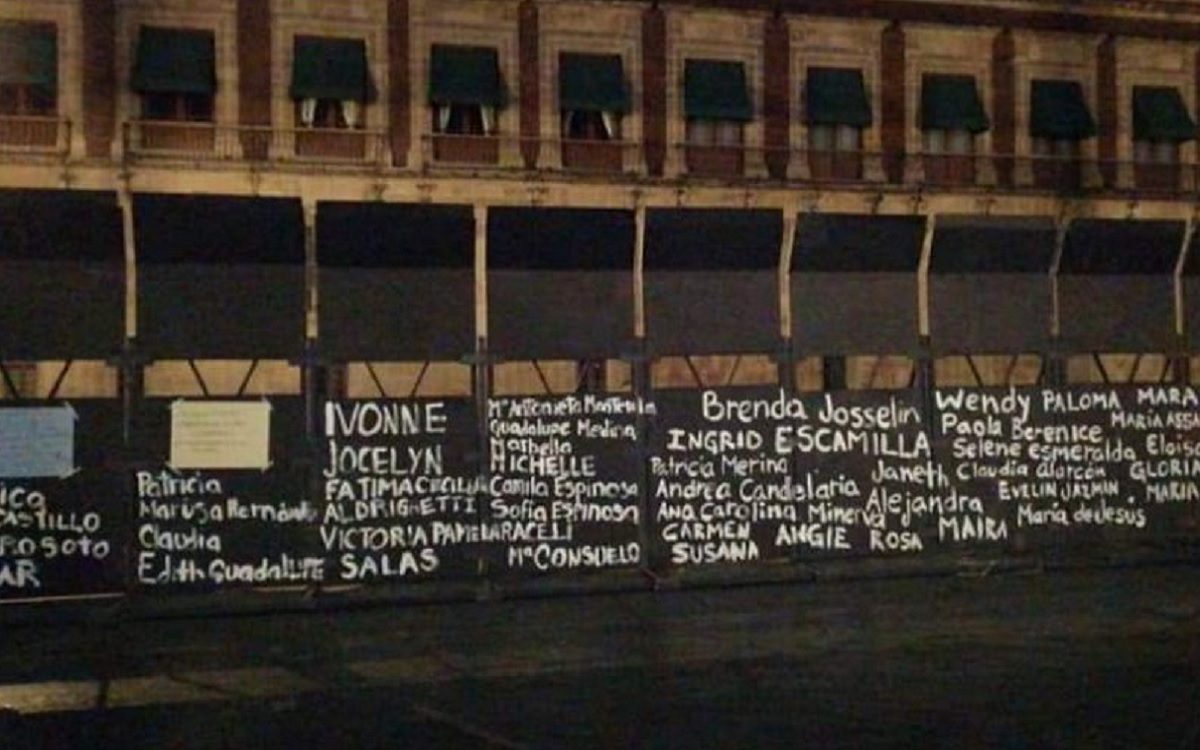 CASTILLO
SOTO
AR
Patricia
Marusa Hernández
Claudia
Edith Guadalupe
IVONNE
JOCELYN
FATIMA CECILIA
ALDRIGHETTI
VICTORIA PAMELA
SALAS
Mª Antonieta
Guadalupe Medina
Nathella
MICHELLE
Camila Espinosa
Sofia Espinosa
ARACELI
Mª CONSUELO
Brenda Josselin
INGRID ESCAMILLA
Patricia Merina
Andrea Candelaria
Ana Carolina Minerva
CARMEN ANGIE ROSA
SUSANA
Janeth
Alejandra
MAIRA
Wendy PALOMA MARA
Paola Berenice MARÍA
Selene esmeralda
Claudia alarcón
EVELIN JAZMIN
María de Jesus